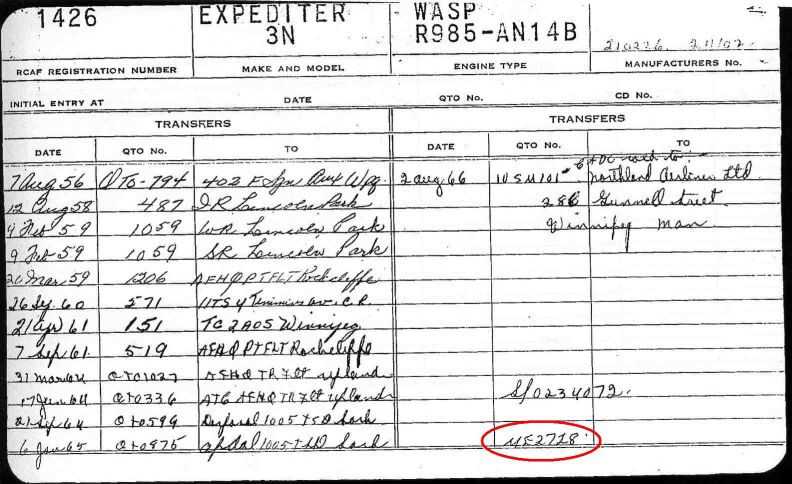 1426 EXPEDITER 3N WASP R985-AN14B
RCAF REGISTRATION NUMBER MAKE AND MODEL ENGINE TYPE MANUFACTURERS No.
INITIAL ENTRY AT DATE QTO No. CD No.
TRANSFERS TRANSFERS
DATE QTO No. TO DATE QTO No. TO
7 Aug 56 QTO-794 402 F Sqn Aux Wpg 2 Aug 66 Northland Airlines Ltd.
12 Aug 58 487 IR Lincoln Park 286 Gunnell Street
4 Feb 59 1059 WR Lincoln Park Winnipeg Man
9 Feb 59 1059 SR Lincoln Park
20 Mar 59 1206 AFHQ PTFLT Rockcliffe
26 Sep 60 571
21 Apr 61 151 TC 2 AOS Winnipeg
7 Sep 61 519 AFHQ PTFLT Rockcliffe
31 Mar 64 QTO1027 AFHQ TR Flt Uplands
17 Jun 64 QTO336 ATC AFHQ TR Flt Uplands S/0234072
21 Sep 64 QTO599 1005 TSD
6 Jan 65 QTO875 1005 TSD ME2718